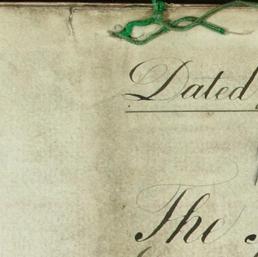 Dated
The